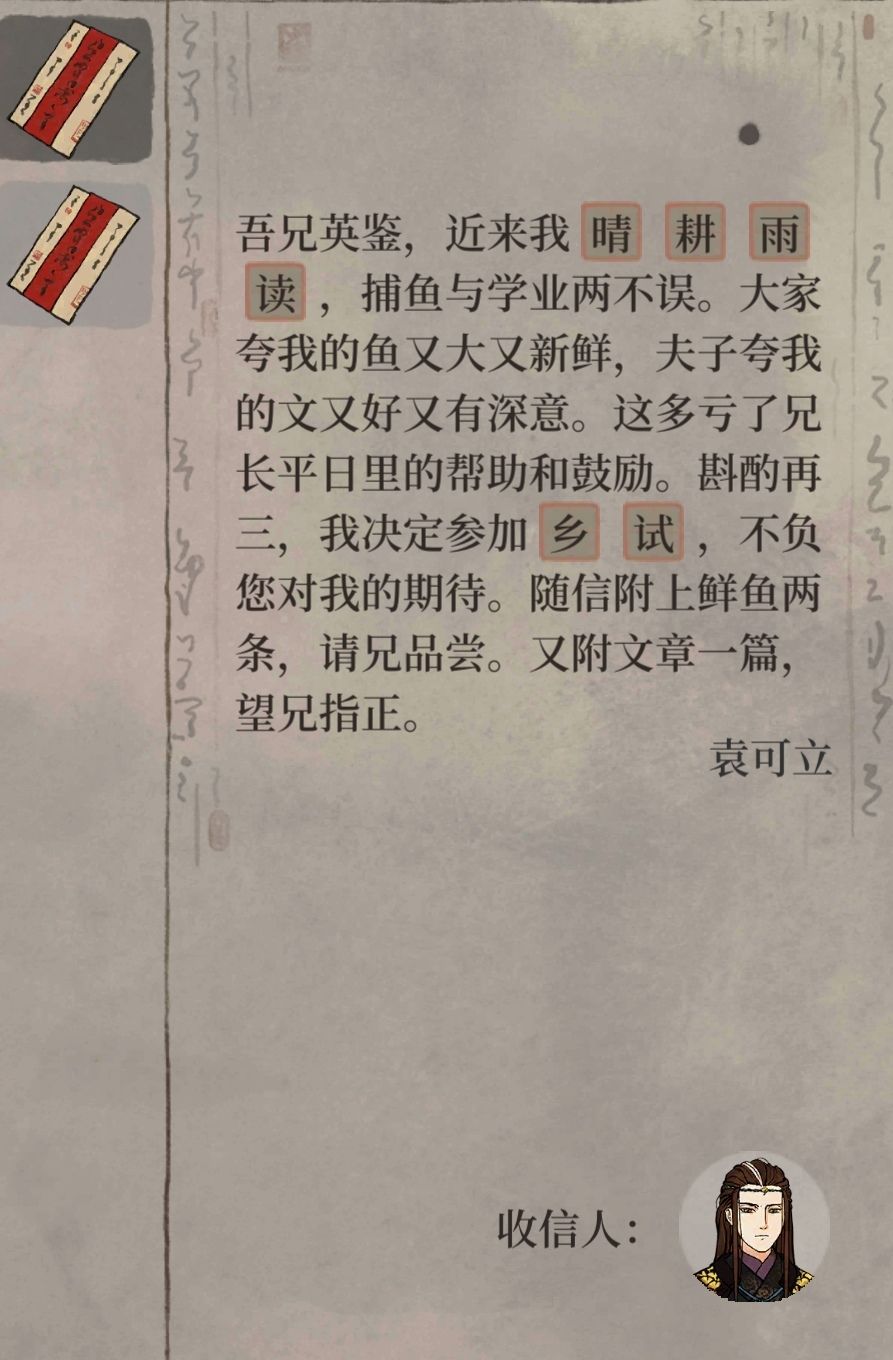 吾兄英鉴，近来我晴耕雨
读，捕鱼与学业两不误。大家
夸我的鱼又大又新鲜，夫子夸我
的文又好又有深意。这多亏了兄
长平日里的帮助和鼓励。斟酌再
三，我决定参加乡试，不负
您对我的期待。随信附上鲜鱼两
条，请兄品尝。又附文章一篇，
望兄指正。
袁可立
收信人：